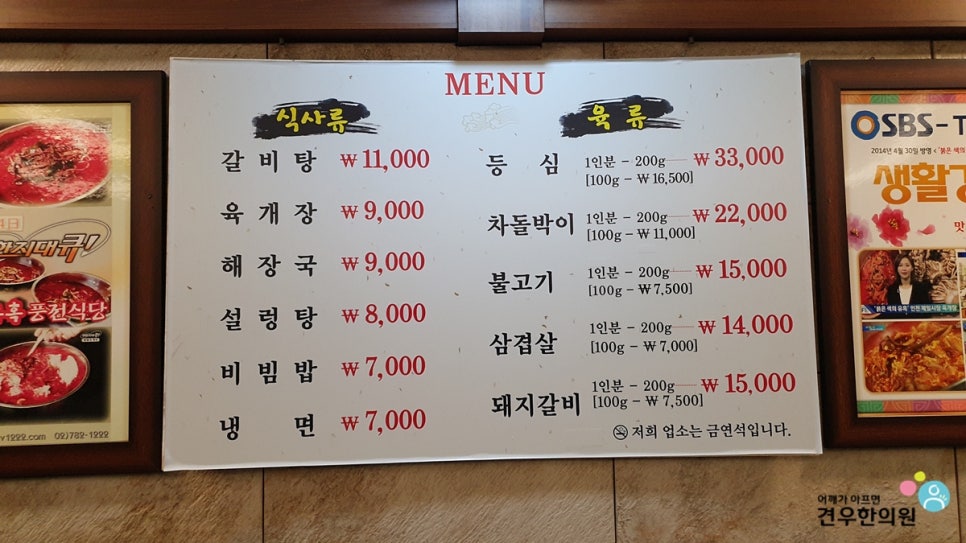 MENU
식사류
갈비탕 ₩ 11,000
육개장 ₩ 9,000
해장국 ₩ 9,000
설렁탕 ₩ 8,000
비빔밥 ₩ 7,000
냉면 ₩ 7,000
육류
등심 1인분 - 200g ₩ 33,000
[100g - ₩ 16,500]
차돌박이 1인분 - 200g ₩ 22,000
[100g - ₩ 11,000]
불고기 1인분 - 200g ₩ 15,000
[100g - ₩ 7,500]
삼겹살 1인분 - 200g ₩ 14,000
[100g - ₩ 7,000]
돼지갈비 1인분 - 200g ₩ 15,000
[100g - ₩ 7,500]
저희 업소는 금연석입니다.
풍천식당
1222.com 02)782-1222
SBS-T
2014년 4월 30일 방영
생활
맛
어깨가 아프면
견우한의원